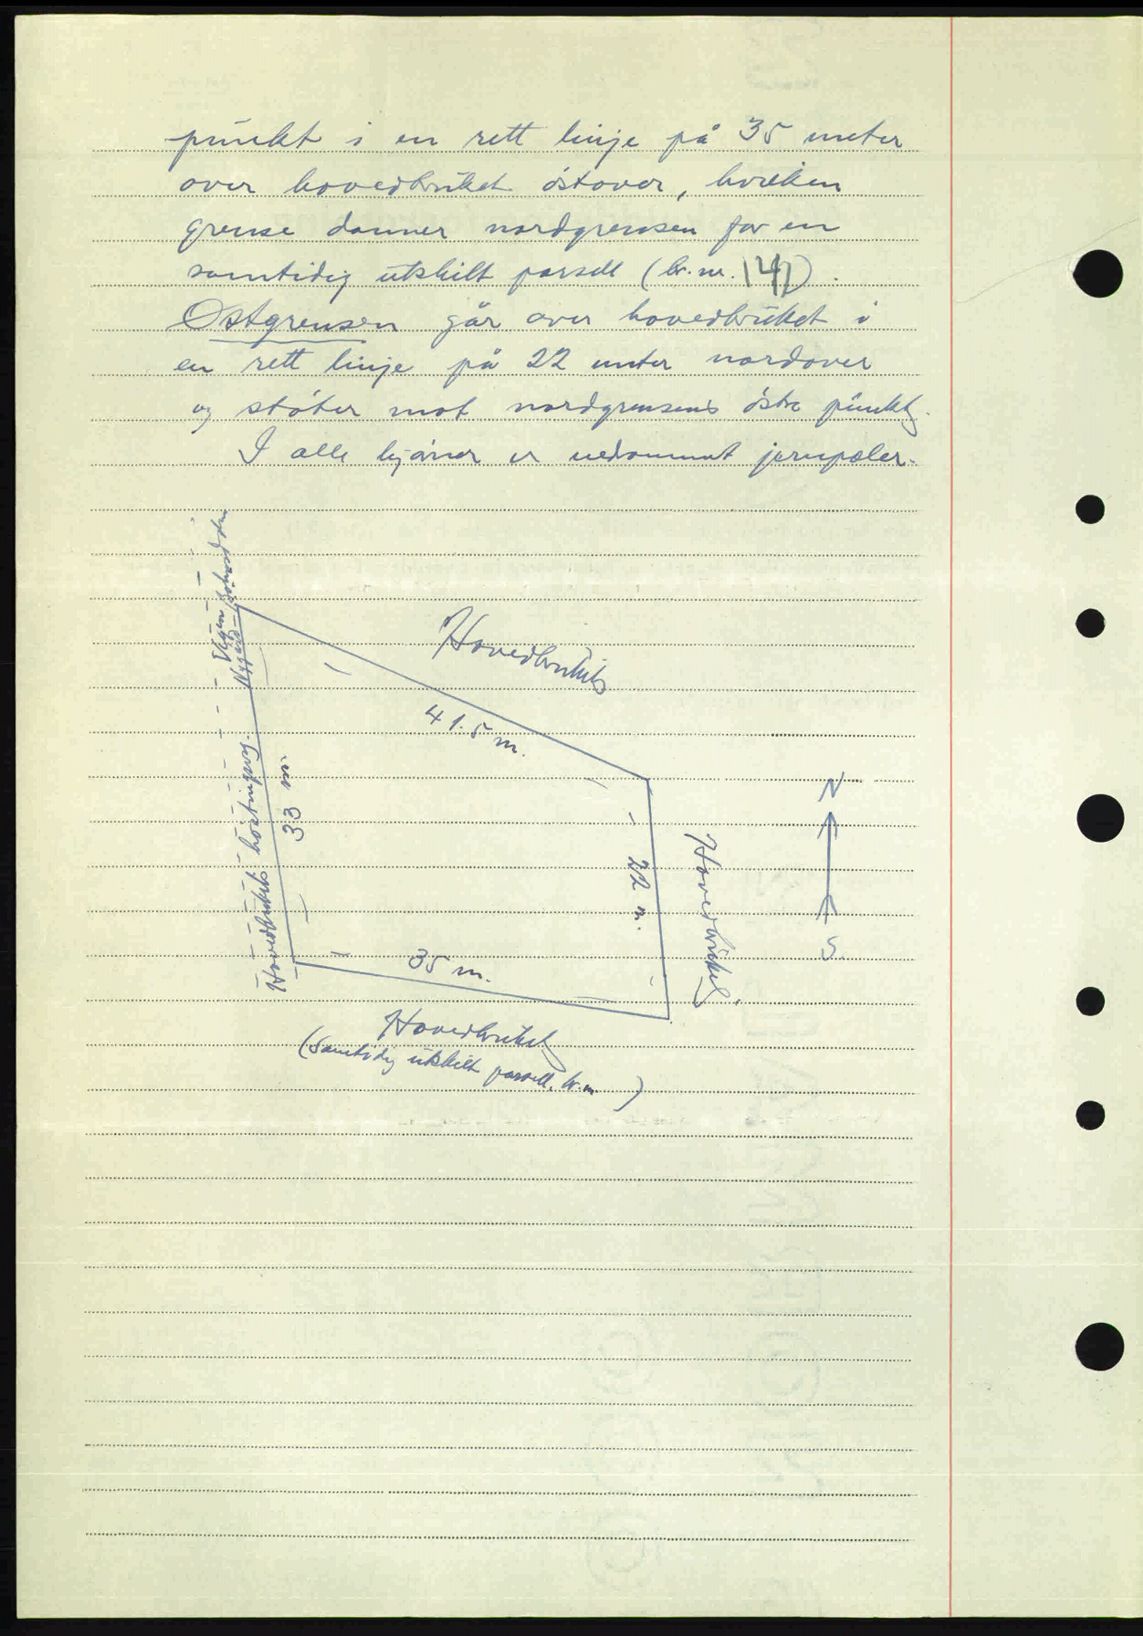 punkt i en rett linje på 35 meter
over hovedbruket östover, hvilken
grense danner nordgrensen for en
samtidig utskilt parsell (br.nr. 141).
Östgrensen går over hovedbruket i
en rett linje på 22 meter nordover
og støter mot nordgrensens östre punkt.
I alle hjörner er nedrammet jernpæler.
Vegen
Nygård -
Hovedbruket
41.5 m.
Hovedbrukets havningsveg.
33 m.
N
22 m.
Hovedbruket
S.
35 m.
Hovedbruket
(Samtidig utskilt parsell, br.nr. )